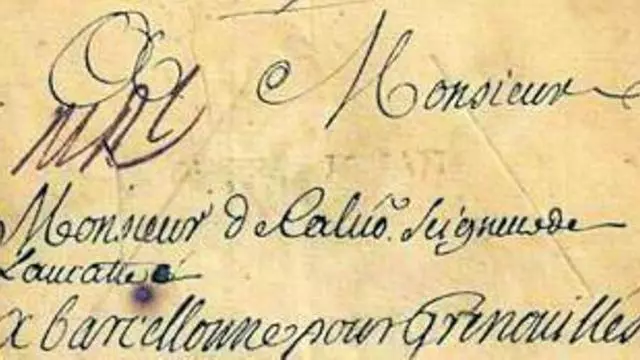 A Monsieur
Monsieur de Calvo. Seigneur de
a barcellonne pour Grinouilles